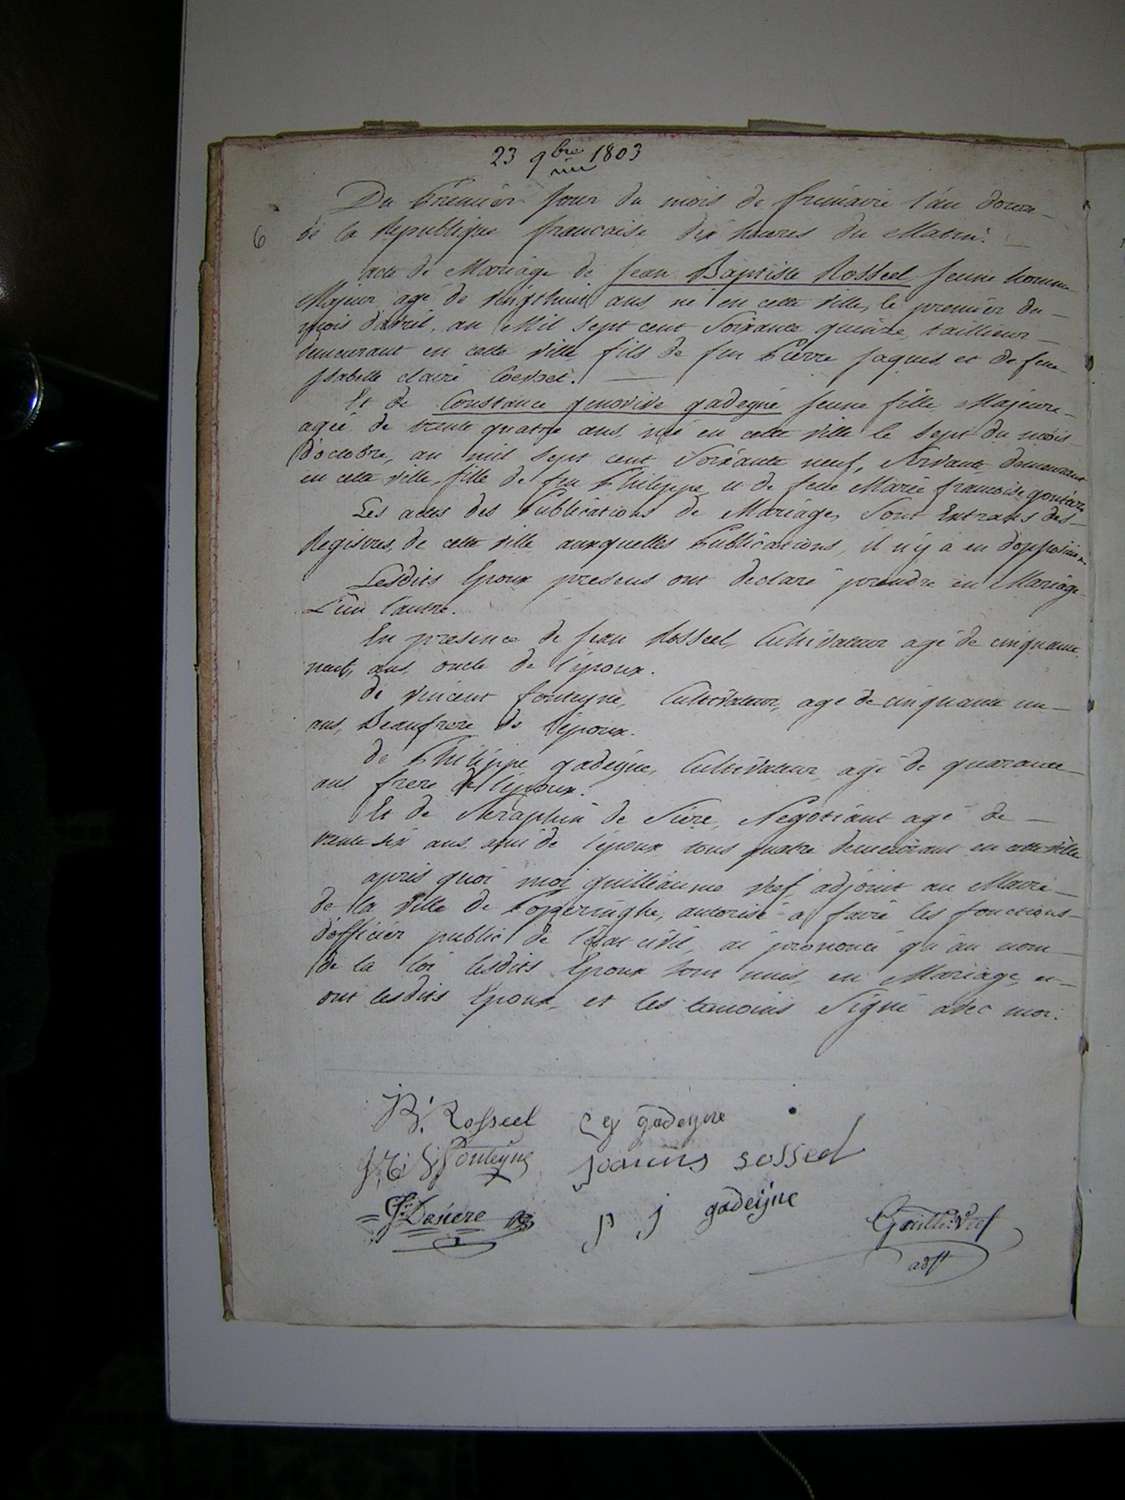 23 9bre 1803
Du Premier Jour du mois de frimaire l'an douze
6
de la Republique francaise dix heures du Matin.
acte de Mariage de Jean Baptiste Rosseel Jeune homme
Majeur agé de vingthuit ans, né en cette ville, le premier du
mois d'avril, an Mil Sept cent Soixante quinze, taillieur
demeurant en cette Ville fils de feu Pierre Jaques et de feue
Isabelle claire
Et de Constance genovive gadeyne Jeune fille Majeure
agée de trente quatre ans, née en cette ville le Sept du mois
d'octobre, an mil Sept cent Soixante neuf, Servante demeurant
en cette ville, fille de feu Philippe et de feue Marie francoise
Les actes des Publications de Mariage, Sont Extraits des
Registres, de cette Ville auxquelles Publications, il n'y a eu d'opposition
Lesdits Epoux presens ont declaré prendre en Mariage
L'un l'autre.
En presence de Jean Rosseel, Cultivateur agé de cinquante
neuf, ans, oncle de l'époux.
de Vincent fonteyne, Cultivateur, agé de cinquante un
ans, Beaufrere de l'époux.
de Philippe gadeyne, Cultivateur agé de quarante
ans frere de l'épouse.
Et de Seraphin de Siere, Negotiant agé de
trente six ans ami de l'époux tous quatre demeurant en cette ville
après quoi moi guilleaume Verf, adjoint au Maire
de la Ville de Poperinghe, autorisé à faire les fonctions
d'officier public de l'état civil, ai prononcé qu'au nom
de la loi lesdits Epoux Sont unis, en Mariage, et
ont lesdits Epoux et les temoins Signé avec moi.
JB. Rosseel C g gadeyne
Fonteyne Joannes rosseel
Desiere p j gadeijne
Guille. Verf
adjt